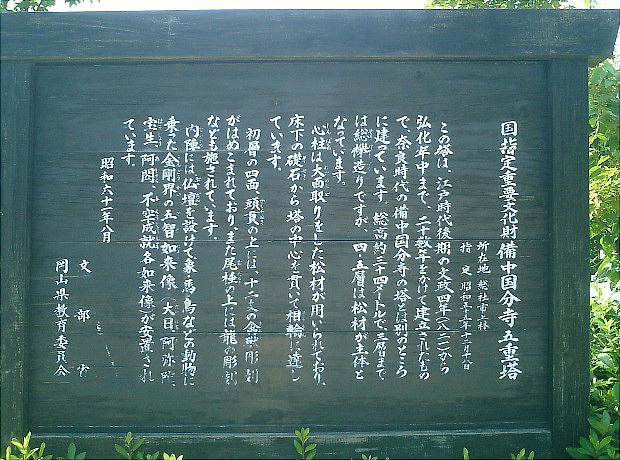 国指定重要文化財 備中国分寺五重塔
所在地 総社市上林
指 定 昭和五十五年十二月十八日
この塔は、江戸時代後期の文政四年(一八二一)から
弘化年中まで、二十数年をかけて建立されたもの
で、奈良時代の備中国分寺の塔とは別のところ
に建っています。総高約三十四メートルで、三層まで
は総欅造りですが、四・五層は松材が主体と
なっています。
心柱は大面取りをした松材が用いられており、
床下の礎石から塔の中心を貫いて相輪に達し
ていきます。
初層の四面、頭貫の上には、十二支の彫刻
がはめこまれており、また尾棰の上には龍の彫刻
なども施されています。
内陣には仏壇を設けて象・馬・鳥などの動物に
乗った金剛界の五智如来像(大日、阿弥陀、
室生、阿閦、不空成就各如来像)が安置され
ています。
昭和六十一年八月
文 部 省
岡山県教育委員会